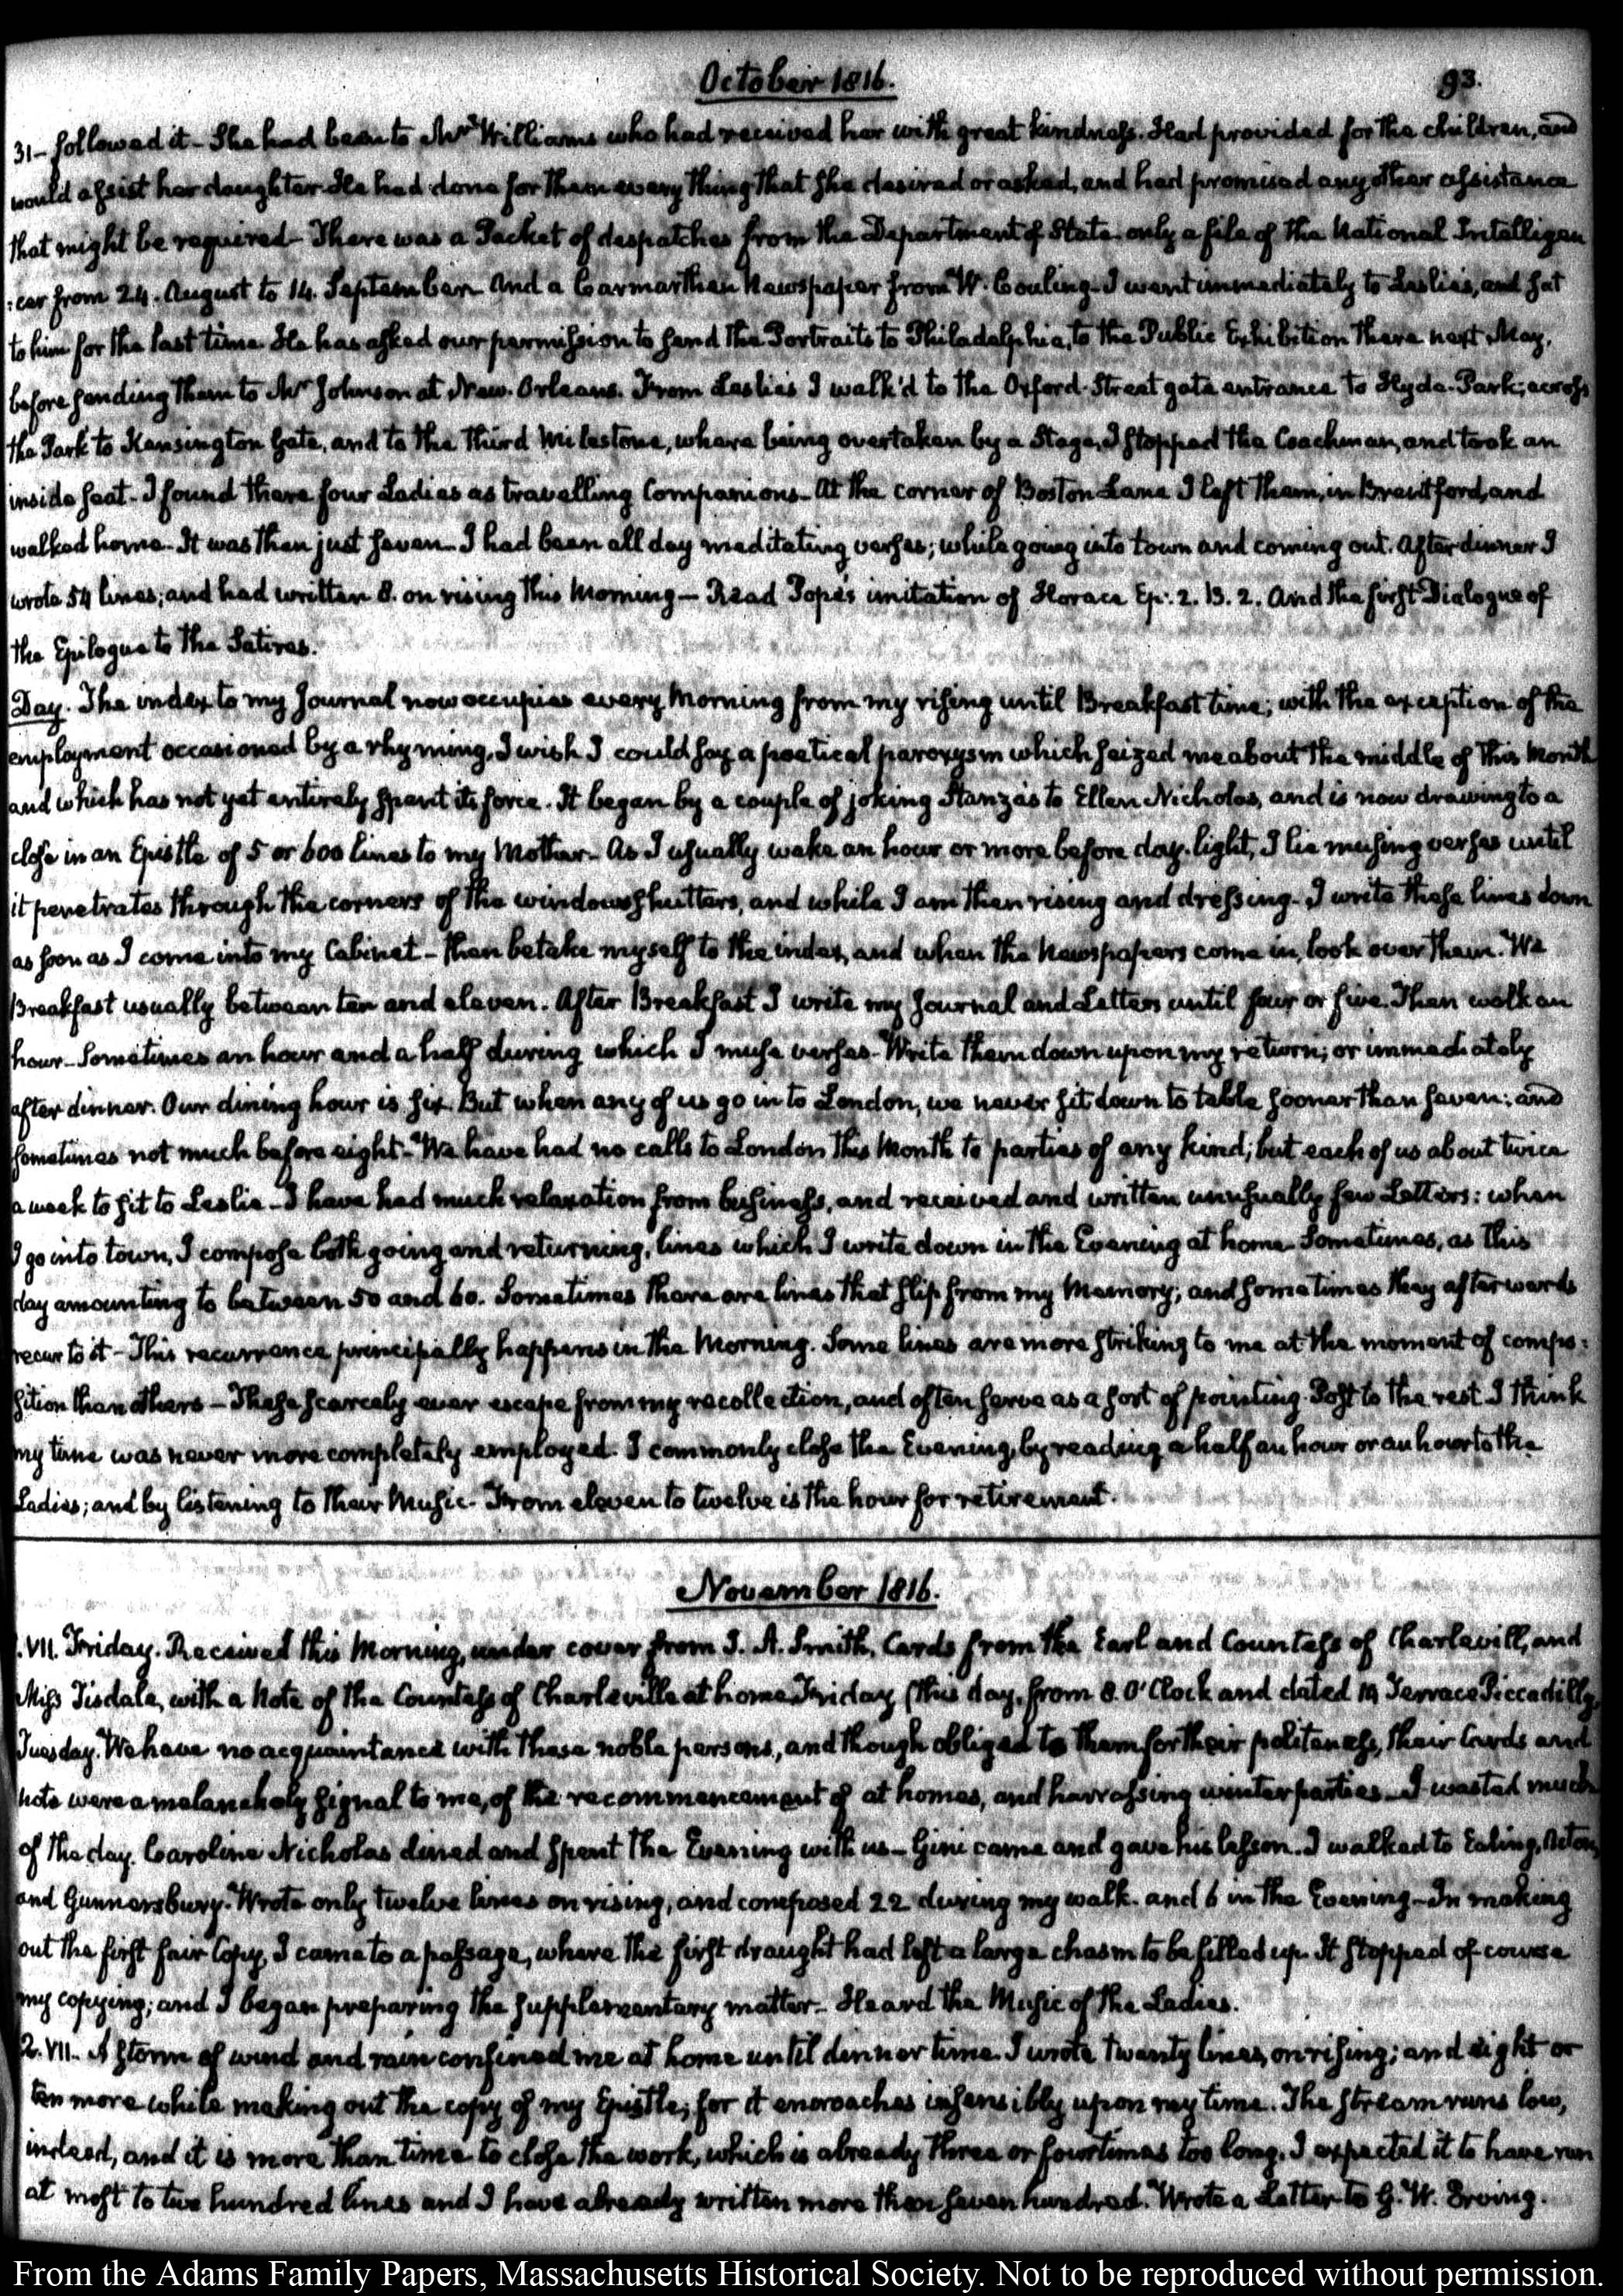 October 1816.
93.
31- followed it- She had been to Mrs Williams who had received her with great kindness. Had provided for the children, and
would assist her daughter. He had done for them every thing that she desired or asked, and had promised any other assistance
that might be required- There was a Packet of despatches from the Department of State. only a file of the National Intelligen
:cer from 24. August to 14. September. And a Carmarthen Newspaper from W. Couling- I went immediately to Leslie's, and sat
to him for the last time. He has asked our permission to send the Portraits to Philadelphia, to the Public Exhibition there next May,
before sending them to Mr Johnson at New-Orleans. From Leslie's I walk'd to the Oxford-Street gate entrance to Hyde-Park; across
the Park to Kensington Gate, and to the third Milestone, where being overtaken by a Stage, I stopped the Coachman, and took an
inside seat- I found there four Ladies as travelling Companions- At the corner of Boston Lane I left them, in Brentford, and
walked home- It was then just seven- I had been all day meditating verses; while going into town and coming out. After dinner I
wrote 54 lines; and had written 8. on rising this Morning- Read Pope's imitation of Horace Ep: 2. B. 2. And the first Dialogue of
the Epilogue to the Satires.
Day. The index to my Journal now occupies every Morning from my rising until Breakfast time; with the exception of the
employment occasioned by a rhyming, I wish I could say a poetical paroxysm which seized me about the middle of this Month
and which has not yet entirely spent its force. It began by a couple of joking Stanza's to Ellen Nicholas, and is now drawing to a
close in an Epistle of 5 or 600 lines to my Mother- As I usually wake an hour or more before day-light, I lie musing verses until
it penetrates through the corners of the window shutters, and while I am then rising and dressing- I write these lines down
as soon as I come into my Cabinet- then betake myself to the index, and when the Newspapers come in, look over them. We
Breakfast usually between ten and eleven. After Breakfast I write my Journal and Letters until four or five. Then walk an
hour- Sometimes an hour and a half during which I muse verses- Write them down upon my return; or immediately
after dinner. Our dining hour is six. But when any of us go in to London, we never sit down to table sooner than seven; and
sometimes not much before eight- We have had no calls to London this Month to parties of any kind; but each of us about twice
a week to sit to Leslie- I have had much relaxation from business, and received and written unusually few Letters: when
I go into town, I compose both going and returning, lines which I write down in the Evening at home- Sometimes, as this
day amounting to between 50 and 60. Sometimes there are lines that slip from my Memory; and sometimes they afterwards
recur to it- This recurrence principally happens in the Morning. Some lines are more striking to me at the moment of compo:
sition than others- These scarcely ever escape from my recollection, and often serve as a sort of pointing-Post to the rest. I think
my time was never more completely employed. I commonly close the Evening, by reading a half an hour or an hour to the
Ladies; and by listening to their Music- From eleven to twelve is the hour for retirement.
November 1816.
1. VII. Friday. Received this Morning, under cover from J. A. Smith, Cards from the Earl and Countess of Charleville, and
Miss Tisdale, with a Note of the Countess of Charleville at home Friday (this day, from 8. O'Clock and dated 19 Terrace Piccadilly,
Tuesday. We have no acquaintance with these noble persons, and though obliged to them for their politeness, their Cards and
note were a melancholy signal to me, of the recommencement of at homes, and harrassing winter parties- I wasted much
of the day. Caroline Nicholas dined and spent the Evening with us- Gini came and gave his lesson. I walked to Ealing, Acton,
and Gunnersbury. Wrote only twelve lines on rising, and composed 22 during my walk. and 6 in the Evening- In making
out the first fair Copy, I came to a passage, where the first draught had left a large chasm to be filled up. It stopped of course
my copying; and I began preparing the supplementary matter- Heard the Music of the Ladies.
2. VII. A storm of wind and rain confined me at home until dinner time. I wrote twenty lines, on rising; and eight or
ten more while making out the copy of my Epistle; for it encroaches insensibly upon my time. The stream runs low,
indeed, and it is more than time to close the work, which is already three or four times too long. I expected it to have run
at most to two hundred lines and I have already written more than seven hundred. Wrote a Letter to G. W. Erving.
From the Adams Family Papers, Massachusetts Historical Society. Not to be reproduced without permission.